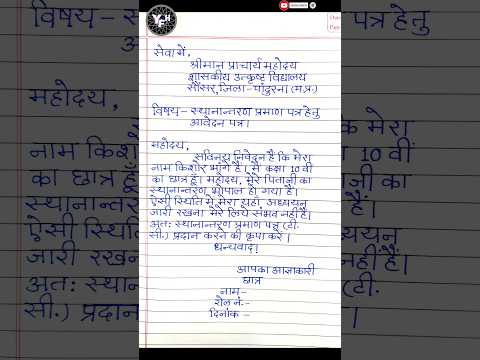 विषय – स्थ
पत्र हेतु
महोदय,
नाम कि
का छात्र
स्थानान्त
ऐसी स्थिति
जारी रखन
अतः स्था
सी.) प्रद
मेरा
10 वीं
का
SUBSCRIBE
सेवा में,
श्रीमान प्राचार्य महोदय
शासकीय उत्कृष्ट विद्यालय
सौंसर, जिला- पांढुरना (म.प्र.)
विषय- स्थानान्तरण प्रमाण पत्र हेतु
आवेदन पत्र।
महोदय,
सविनय निवेदन है कि मेरा
नाम किशोर भांगे है। मैं कक्षा 10 वीं
का छात्र हूँ। महोदय, मेरे पिताजी का
स्थानान्तरण भोपाल हो गया है।
ऐसी स्थिति में मेरा यहाँ अध्ययन
जारी रखना मेरे लिये संभव नहीं है।
अतः स्थानान्तरण प्रमाण पत्र (टी.
सी.) प्रदान करने की कृपा करें।
धन्यवाद!
आपका आज्ञाकारी
छात्र
नाम-
रोल नं.-
दिनांक -